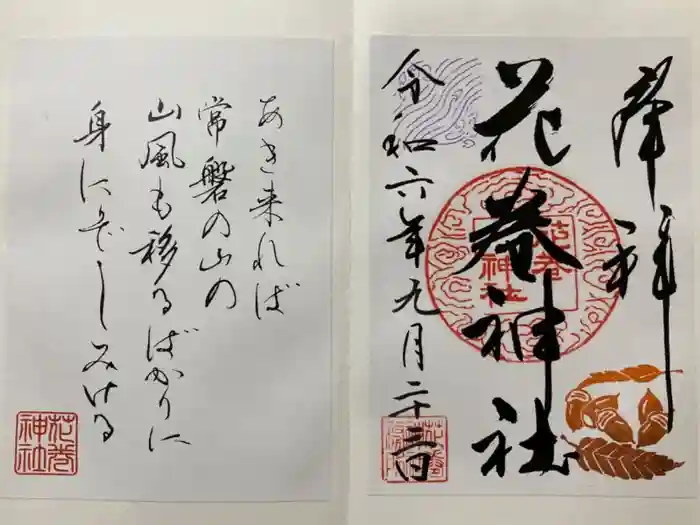 奉拝
花巻神社
花巻
神社
令和六年九月二十三日
あき来れば
常磐の山の
山風も移るばかりに
身にぞしみける
花巻
神社